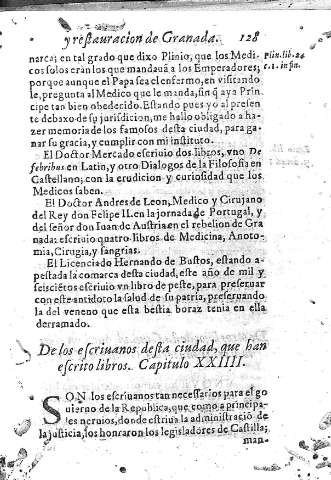 y restauracion de Granada. 128
narca; en tal grado que dixo Plinio, que los Medi-
cos solos eran los que mandauā a los Emperadores;
porque aunque el Papa sea el enfermo, en visitando
le, pregunta al Medico que le manda, sin q̄ aya Prin
cipe tan bien obedecido. Estando pues yo al presen
te debaxo de su jurisdicion, me hallo obligado a ha-
zer memoria de los famosos desta ciudad, para ga-
nar su gracia, y cumplir con mi instituto.
Plin. lib. 24
c. 1. in fin.
El Doctor Mercado escriuio dos libros, vno De
febribus en Latin, y otro Dialogos de la Filosofia en
Castellano; con la erudicion y curiosidad que los
Medicos saben.
El Doctor Andres de Leon, Medico y Cirujano
del Rey don Felipe II. en la jornada de Portugal, y
del señor don Iuan de Austria en el rebelion de Gra
nada: escriuio quatro libros de Medicina, Anoto-
mia, Cirugia, y sangrias.
El Licenciado Hernando de Bustos, estando a-
pestada la comarca desta ciudad, este año de mil y
seiscientos escriuio vn libro de peste, para preseruar
con este antidoto la salud de su patria, preseruando
la del veneno que esta bestia boraz tenia en ella
derramado.
De los escriuanos desta ciudad, que han
escrito libros. Capitulo XXIIII.
SON los escriuanos tan necessarios para el go
uierno de la Republica, que como a principa-
les neruios, donde estriua la administraciō de
la justicia, los honraron los legisladores de Castilla;
man-